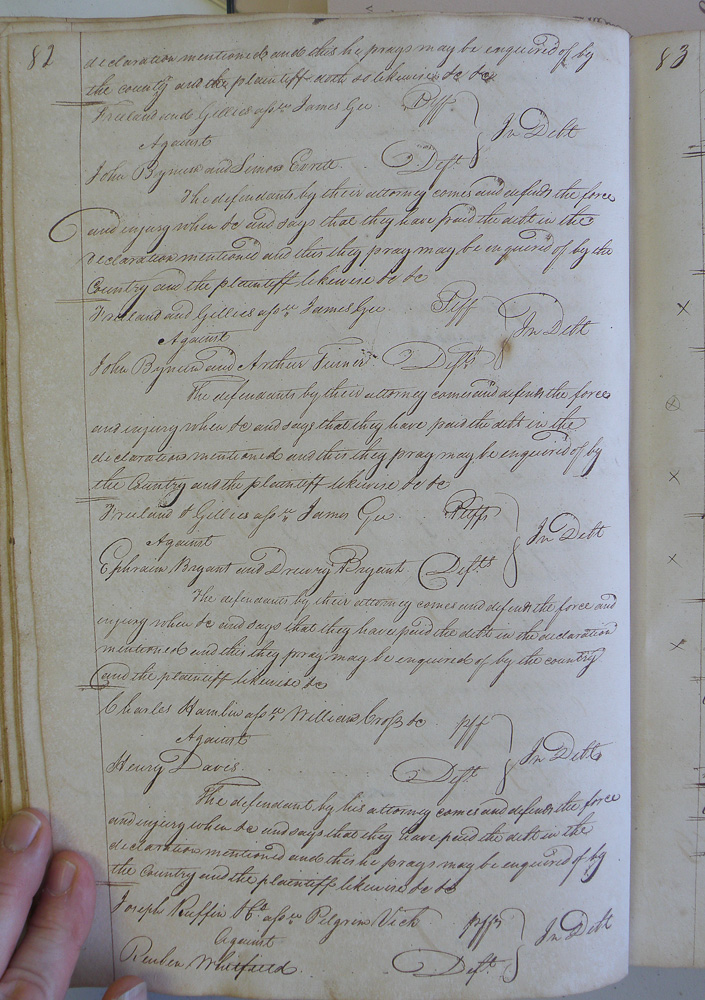 82
declaration mentioned and this he prays may be enquired of by
the county and the plaintiff doth so likewise &c &c
Freeland and Gillies assee James Gee Plff
Against In Debt
John Bynum and Simon Everett Deft
The defendants by their attorney comes and defends the force
and injury when &c and says that they have paid the debt in the
declaration mentioned and this they pray may be enquired of by the
Country and the plaintiff likewise &c &c
Freeland and Gillies assee James Gee Plff
Against In Debt
John Bynum and Arthur Turner Defts
The defendants by their attorney comes and defends the force
and injury when &c and says that they have paid the debt in the
declaration mentioned and this they pray may be enquired of by
the Country and the plaintiff likewise &c &c
Freeland & Gillies assee James Gee Plffs
Against In Debt
Ephraim Bryant and Drewry Bryant Defts
The defendants by their attorney comes and defends the force and
injury when &c and says that they have paid the debt in the declaration
mentioned and this they pray may be enquired of by the country
and the plaintiff likewise &c
Charles Hamlin assee William Cross &c plf
Against In Debt
Henry Davis Deft
The defendant by his attorney comes and defends the force
and injury when &c and says that they have paid the debt in the
declaration mentioned and this he prays may be enquired of by
the Country and the plaintiff likewise &c &c
Joseph Ruffin assee Pilgrim Vick plff
Against In Debt
Reuben Whitfield Deft
83